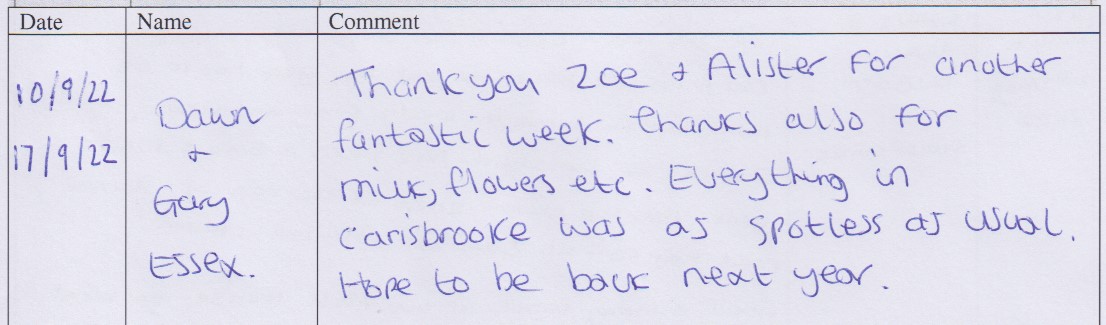 Date Name Comment
10/9/22
17/9/22
Dawn
+
Gary
Essex.
Thank you Zoe + Alister for another
fantastic week. Thanks also for
milk, flowers etc. Everything in
Carisbrooke was as spotless as usual.
Hope to be back next year.